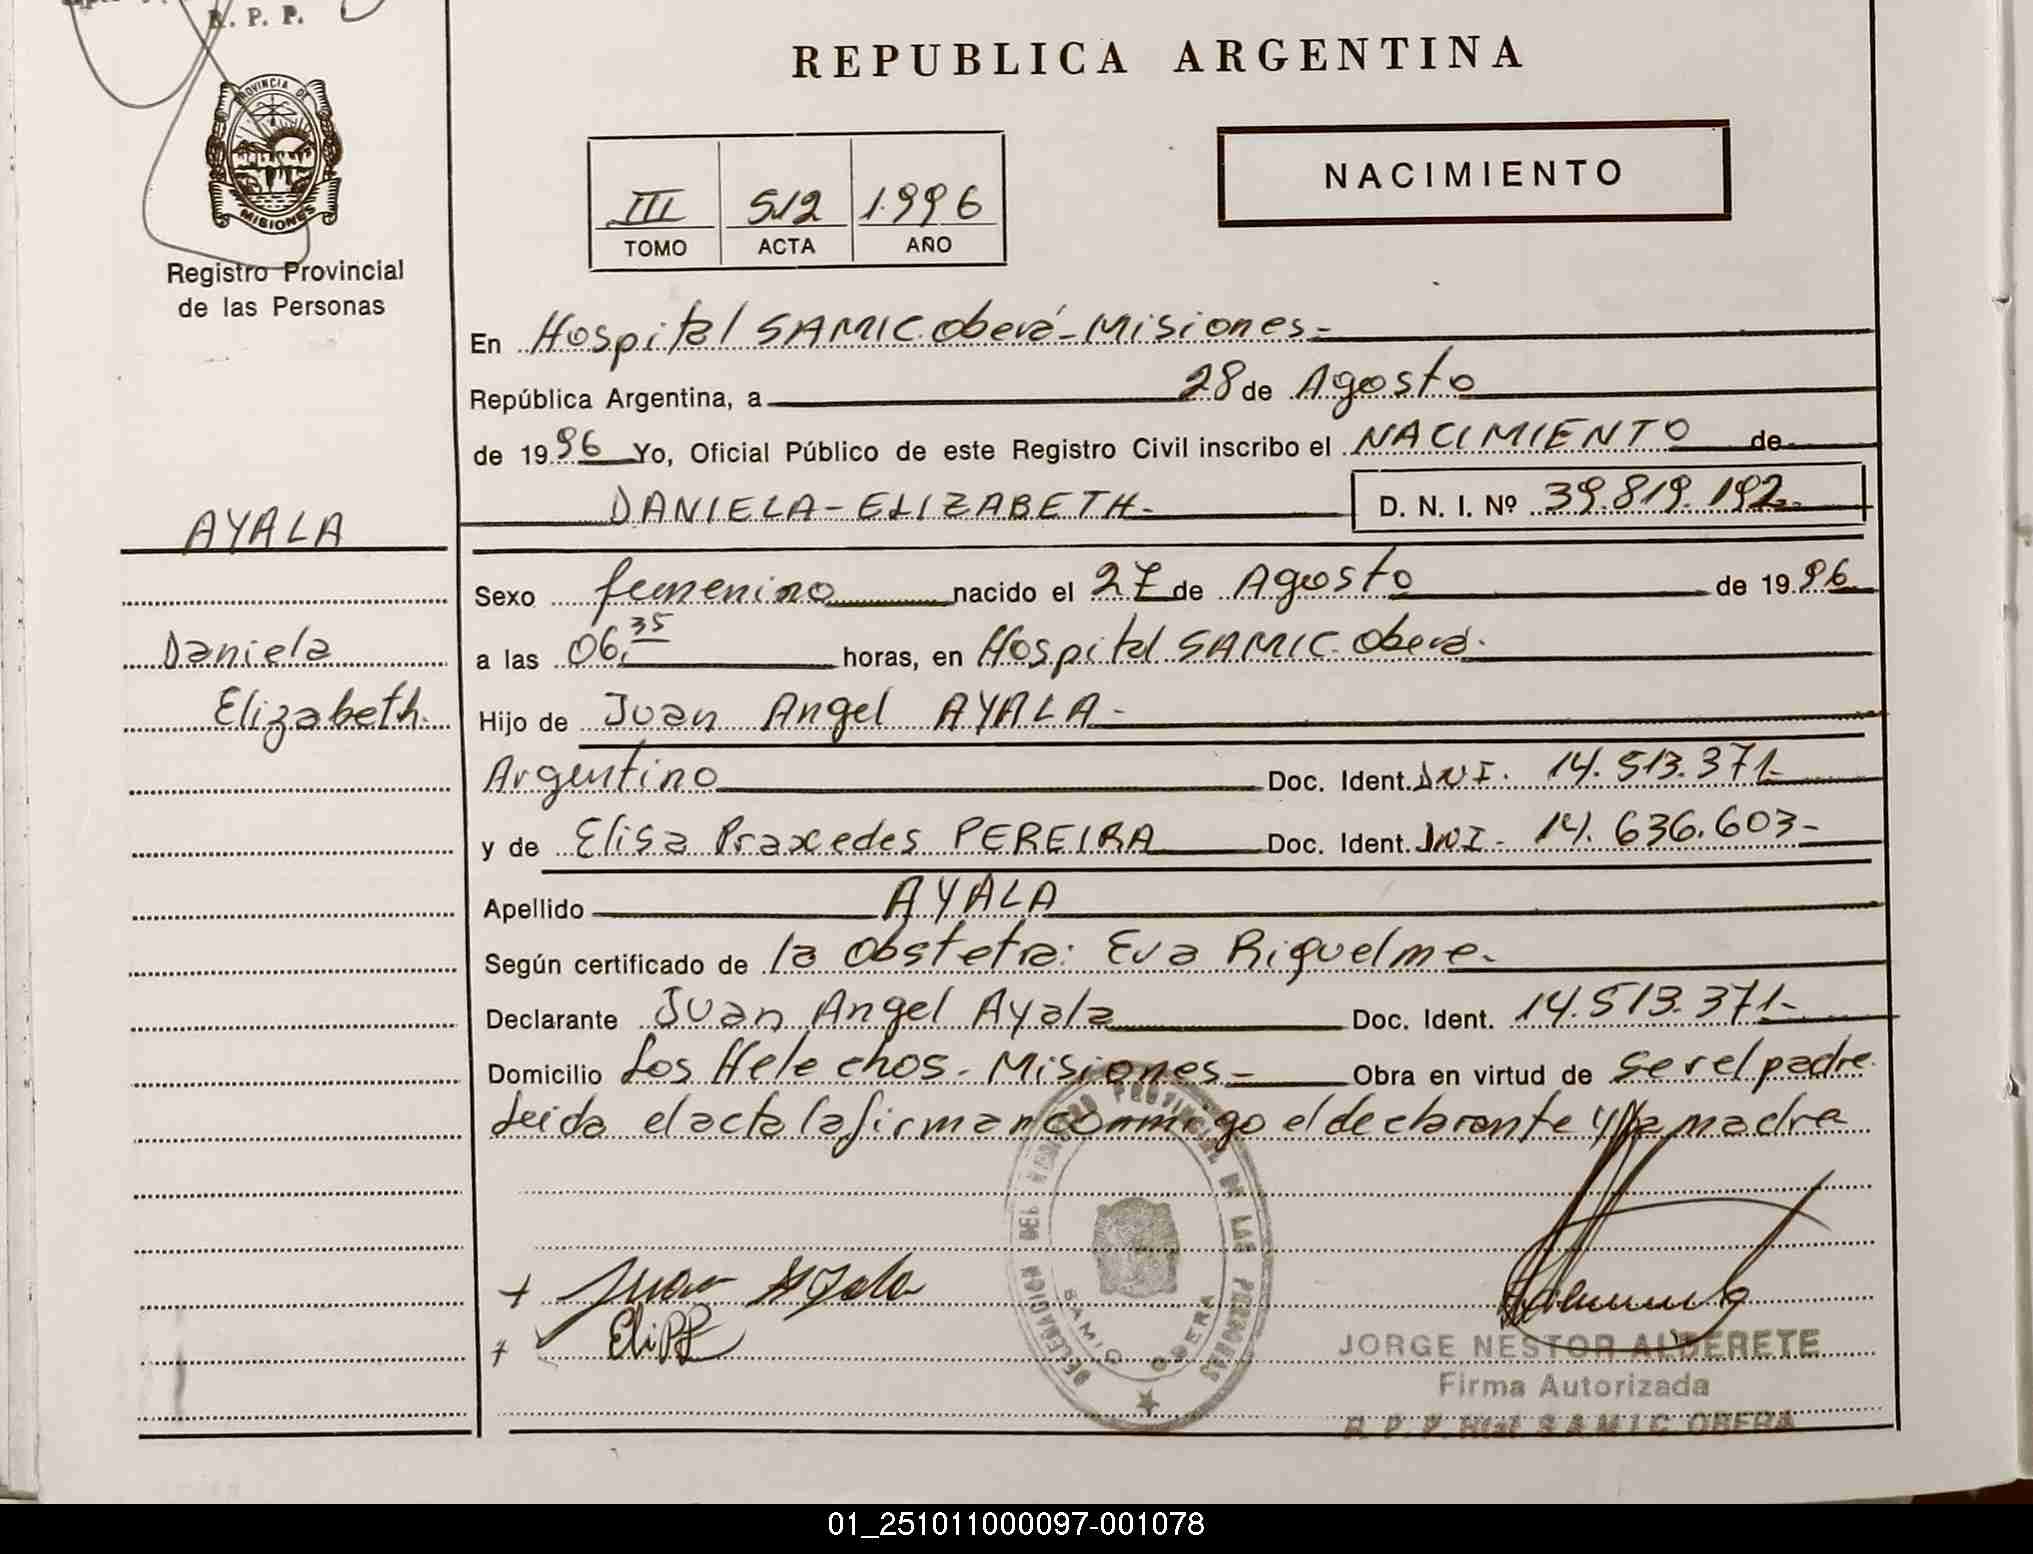 R. P. P.
PROVINCIA DE
MISIONES
Registro Provincial
de las Personas
REPUBLICA ARGENTINA
III 512 1.996
TOMO ACTA AÑO
NACIMIENTO
En Hospital SAMIC. Oberá - Misiones.-
República Argentina, a 28 de Agosto
de 1996 Yo, Oficial Público de este Registro Civil inscribo el NACIMIENTO de
DANIELA - ELIZABETH.- D. N. I. Nº 39.819.192.-
AYALA
Sexo femenino nacido el 27 de Agosto de 1996
Daniela
a las 06,35 horas, en Hospital SAMIC. Oberá.
Elizabeth.
Hijo de Juan Angel AYALA -
Argentino Doc. Ident. DNI. 14.513.371-
y de Elisa Praxedes PEREIRA Doc. Ident. DNI - 14.636.603-
Apellido AYALA
Según certificado de la Obstetra: Eva Riquelme.
Declarante Juan Angel Ayala Doc. Ident. 14.513.371-
Domicilio Los Helechos - Misiones - Obra en virtud de ser el padre
Leida el acta la firman conmigo el declarante y la madre
DELEGACION DEL REGISTRO PROVINCIAL DE LAS PERSONAS
SAMIC OBERA
+ Juan Ayala
+ EliPP
JORGE NESTOR ALDERETE
Firma Autorizada
R. P. P. Htal S.A.M.I.C. OBERA
01_251011000097-001078